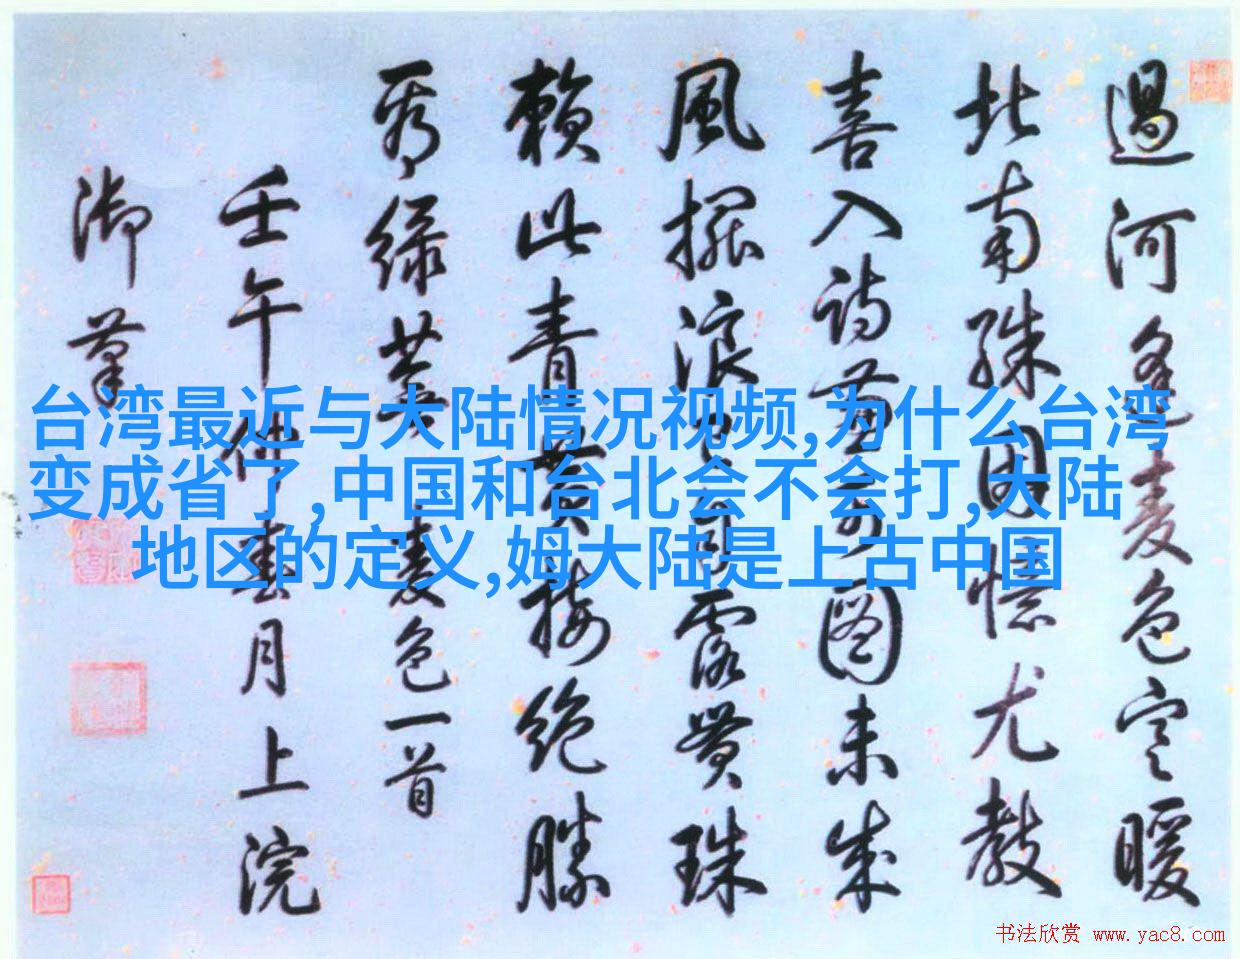 過河逢麦色寒暖
北南殊因憶尤教
喜入詩兼可圖未成
風擺浪有露貫珠
賴此青黃接絕勝
秀綠蕪 麦色一首
壬午仲春月上浣
御筆
台湾最近与大陆情况视频,为什么台湾
变成省了,中国和台北会不会打,大陆
地区的定义,姆大陆是上古中国
书法欣赏 www.yac8.com